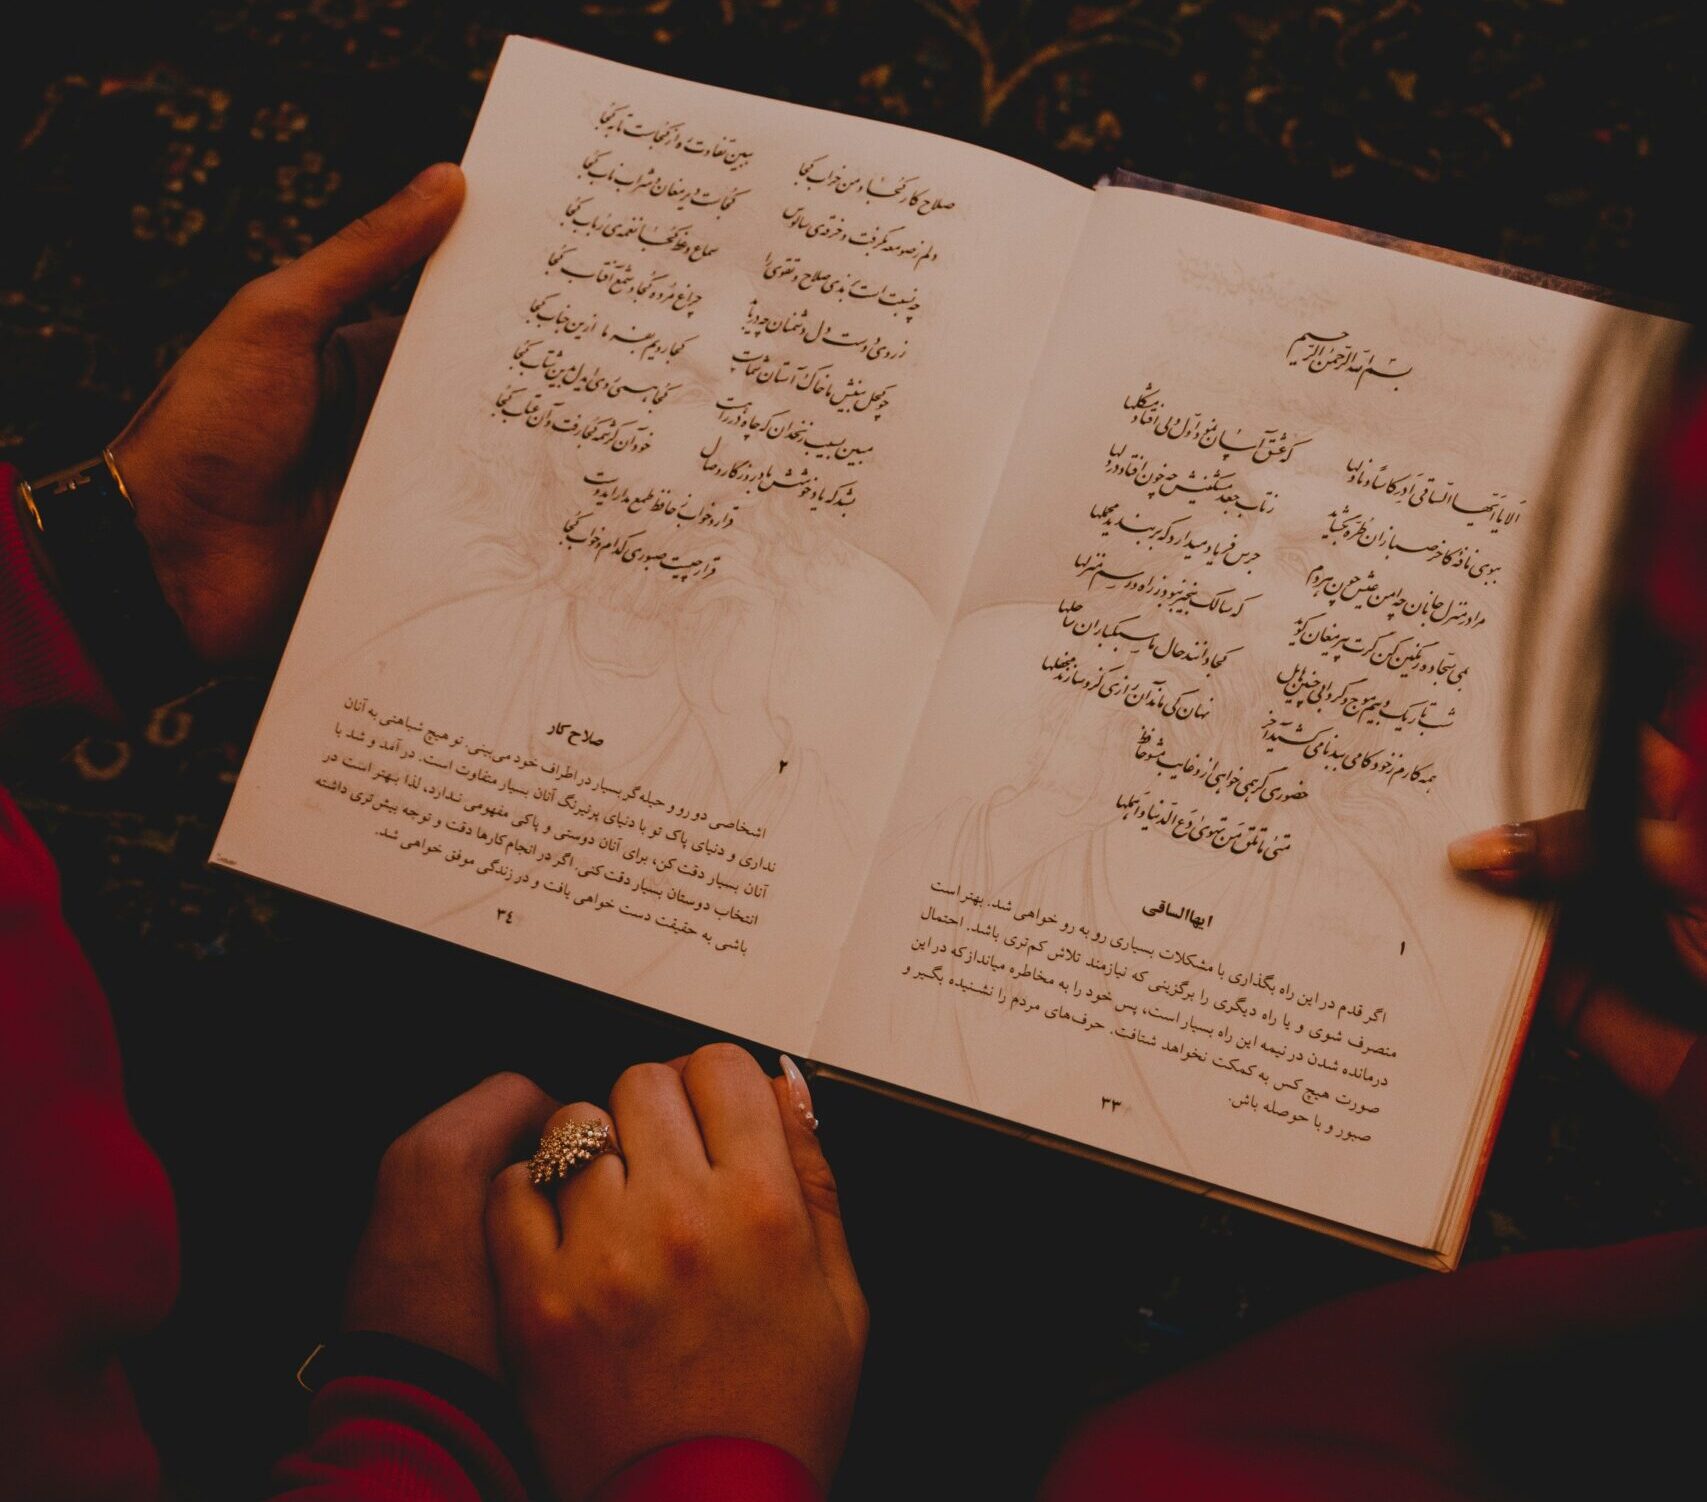 بسم الله الرحمن الرحیم
الا یا ایها الساقی ادر کاسا و ناولها که عشق آسان نمود اول ولی افتاد مشکلها
ببوی نافهٔ کاخر صبا زان طره بگشاید ز تاب جعد مشکینش چه خون افتاد در دلها
مرا در منزل جانان چه امن عیش چون هر دم جرس فریاد میدارد که بربندید محملها
بمی سجاده رنگین کن گرت پیر مغان گوید که سالک بیخبر نبود ز راه و رسم منزلها
شب تاریک و بیم موج و گردابی چنین هایل کجا دانند حال ما سبکباران ساحلها
همه کارم ز خود کامی ببدنامی کشید آخر نهان کی ماند آن رازی کزو سازند محفلها
حضوری گر همی خواهی ازو غایب مشو حافظ
متی ما تلق من تهوی دع الدنیا و اهملها
۱ ایهاالساقی
اگر قدم در این راه بگذاری با مشکلات بسیاری رو به رو خواهی شد. بهتر است
منصرف شوی و یا راه دیگری را برگزینی که نیازمند تلاش کم‌تری باشد. احتمال
درمانده شدن در نیمه این راه بسیار است، پس خود را به مخاطره میانداز که در این
صورت هیچ کس به کمکت نخواهد شتافت. حرف‌های مردم را نشنیده بگیر و
صبور و با حوصله باش.
۳۳
صلاح کار کجا و من خراب کجا ببین تفاوت ره از کجاست تا به کجا
دلم ز صومعه بگرفت و خرقه‌ی سالوس کجاست دیر مغان و شراب ناب کجا
چه نسبت است به رندی صلاح و تقوی را سماع وعظ کجا نغمه‌ی رباب کجا
ز روی دوست دل دشمنان چه دریابد چراغ مرده کجا و شمع آفتاب کجا
چو کحل بینش ما خاک آستان شماست کجا رویم بفرما ازین جناب کجا
مبین بسیب زنخدان که چاه در راهست کجا همی روی ایدل بدین شتاب کجا
بشد که یاد خوشش باد روزگار وصال خود آن کرشمه کجا رفت و آن عتاب کجا
قرار و خواب ز حافظ طمع مدار ایدوست
قرار چیست صبوری کدام و خواب کجا
۲ صلاح کار
اشخاصی دو رو و حیله‌گر بسیار در اطراف خود می‌بینی. تو هیچ شباهتی به آنان
نداری و دنیای پاک تو با دنیای پرنیرنگ آنان بسیار متفاوت است. در آمد و شد با
آنان بسیار دقت کن، برای آنان دوستی و پاکی مفهومی ندارد، لذا بهتر است در
انتخاب دوستان بسیار دقت کنی. اگر در انجام کارها دقت و توجه بیش‌تری داشته
باشی به حقیقت دست خواهی یافت و در زندگی موفق خواهی شد.
۳۴